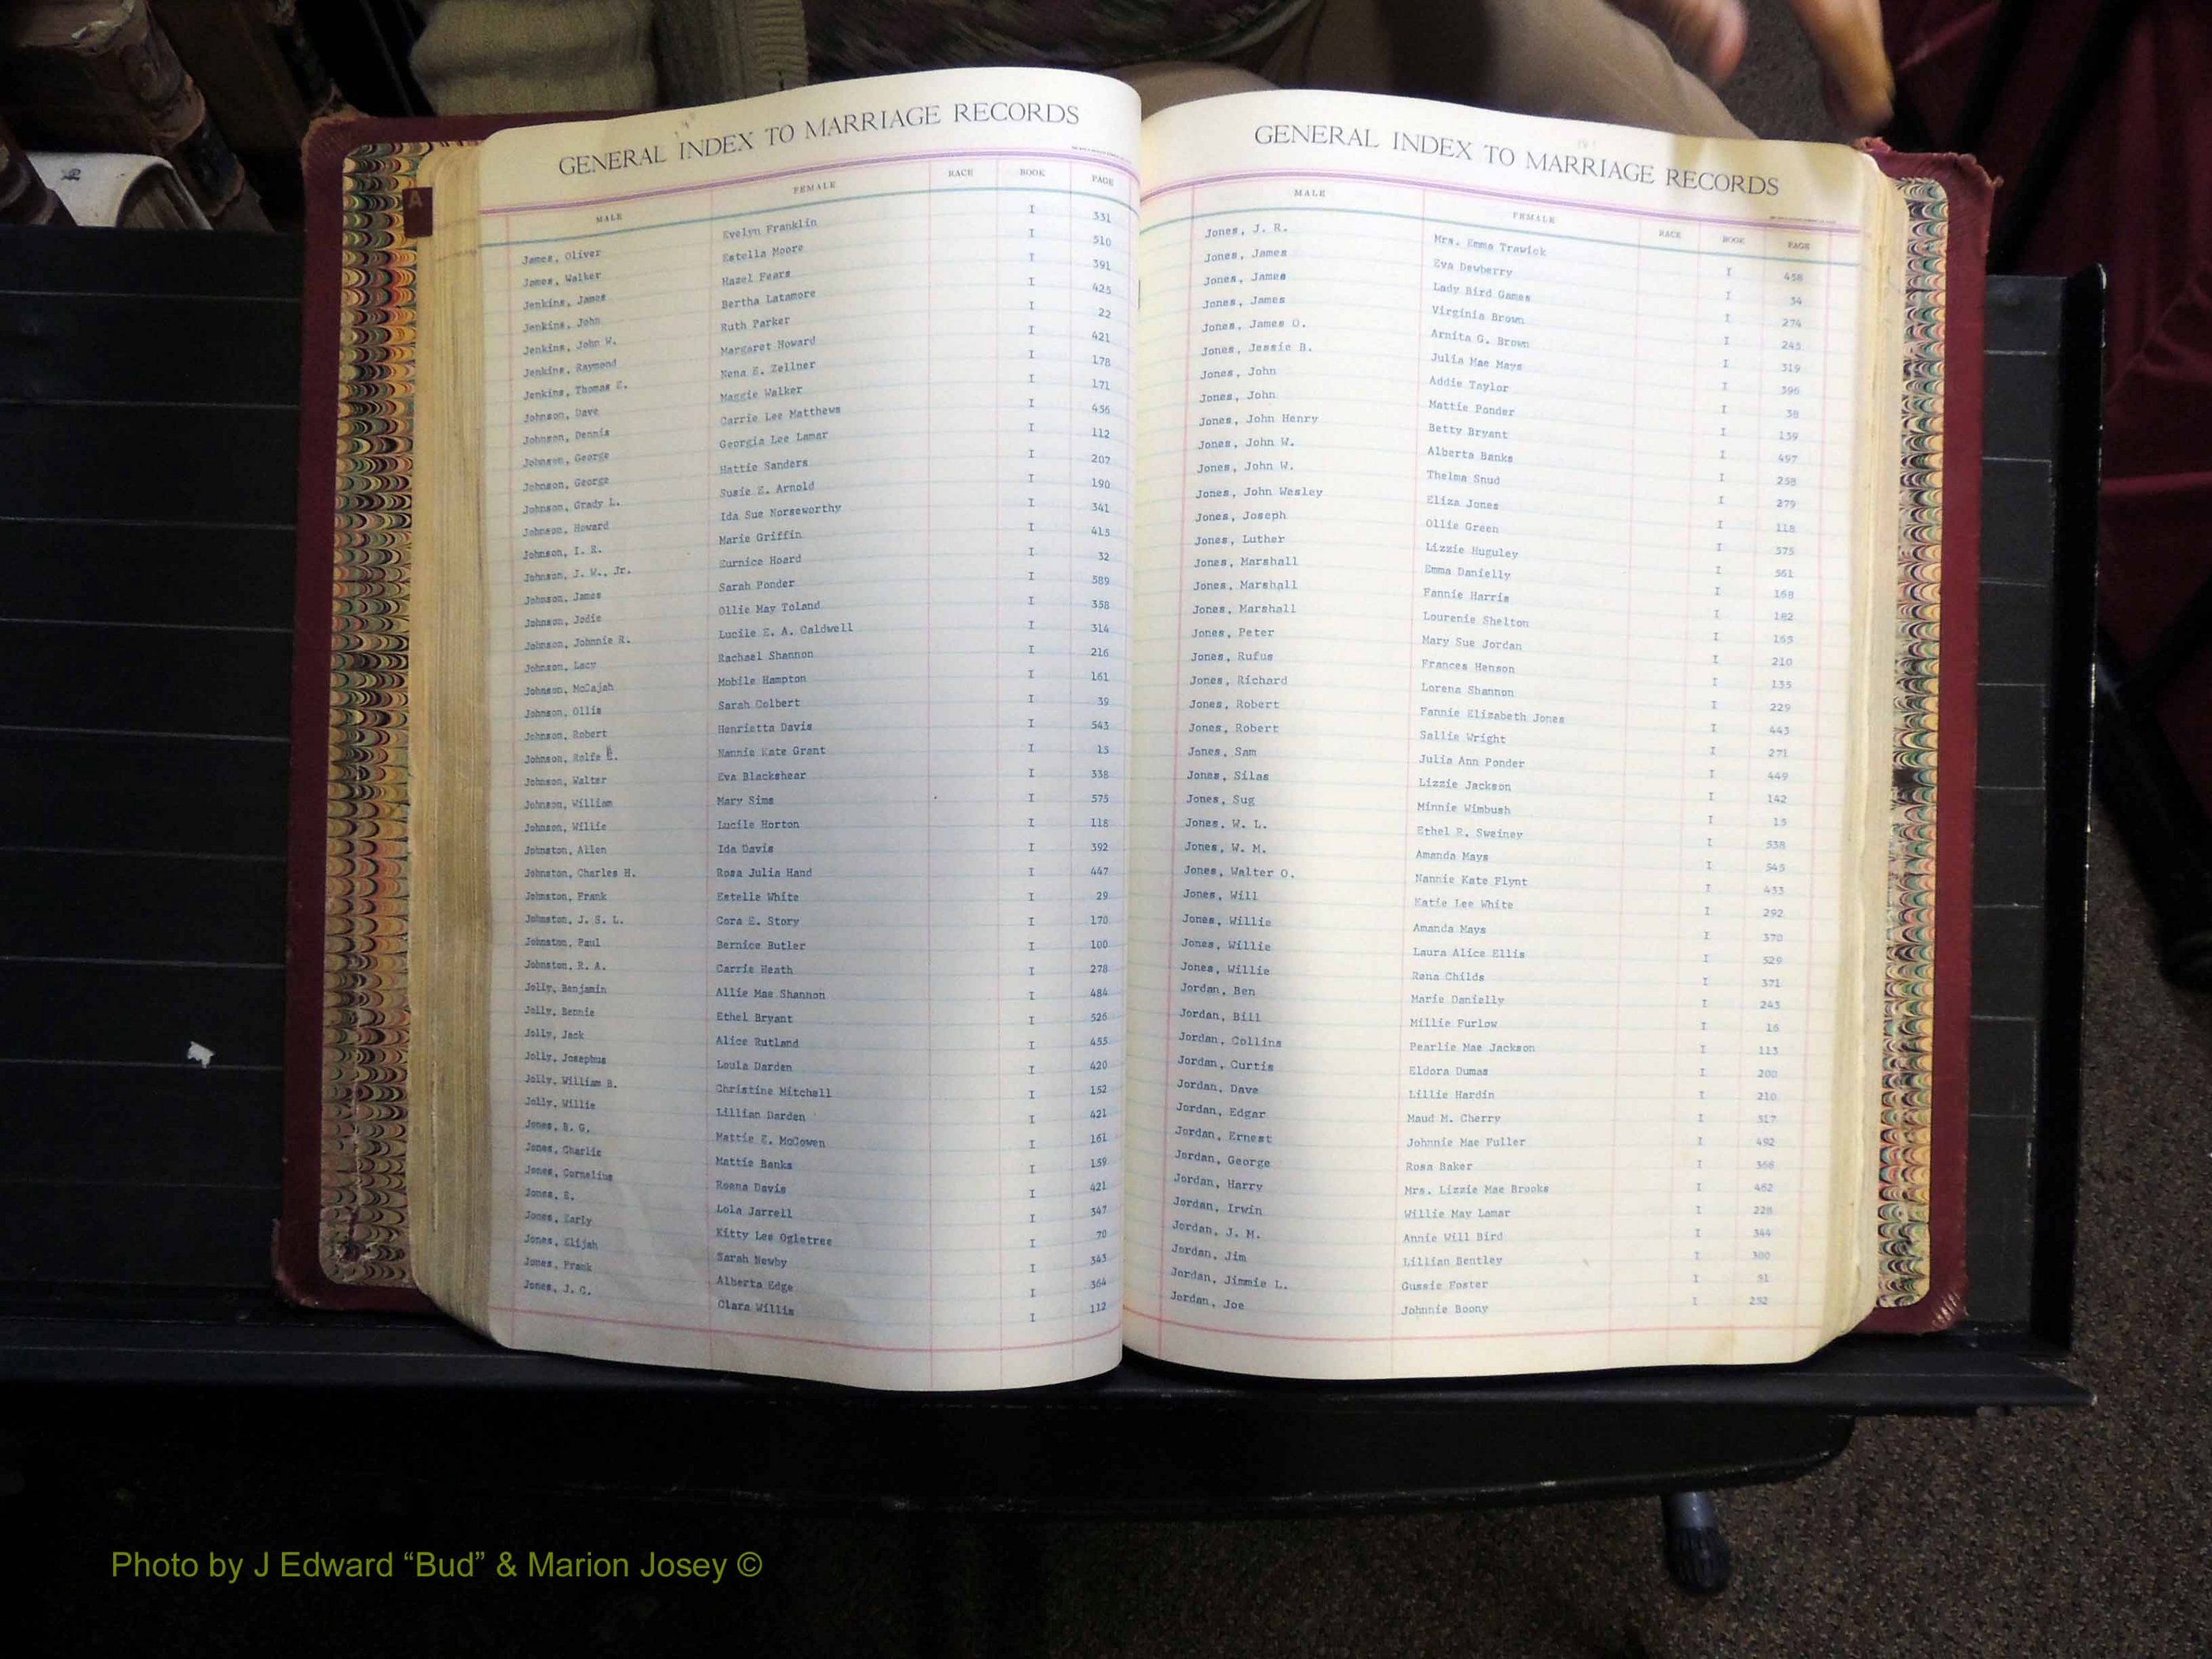 GENERAL INDEX TO MARRIAGE RECORDS
MALE FEMALE RACE BOOK PAGE
James, Oliver Evelyn Franklin I 331
James, Walker Estella Moore I 510
Jenkins, James Hazel Fears I 391
Jenkins, John Bertha Latamore I 425
Jenkins, John W. Ruth Parker I 22
Jenkins, Raymond Margaret Howard I 421
Jenkins, Thomas E. Nena E. Zellner I 178
Johnson, Dave Maggie Walker I 171
Johnson, Dennis Carrie Lee Matthews I 456
Johnson, George Georgia Lee Lamar I 112
Johnson, George Hattie Sanders I 202
Johnson, Grady L. Susie E. Arnold I 190
Johnson, Howard Ida Sue Norseworthy I 341
Johnson, I. R. Marie Griffin I 415
Johnson, J. W., Jr. Eurnice Hoard I 32
Johnson, James Sarah Ponder I 589
Johnson, Jodie Ollie May Toland I 358
Johnson, Johnnie R. Lucile E. A. Caldwell I 314
Johnson, Lacy Rachael Shannon I 216
Johnson, McCajah Mobile Hampton I 161
Johnson, Ollis Sarah Colbert I 39
Johnson, Robert Henrietta Davis I 543
Johnson, Rolfe E. Nannie Kate Grant I 15
Johnson, Walter Eva Blackshear I 338
Johnson, William Mary Sims I 575
Johnson, Willie Lucile Horton I 118
Johnston, Allen Ida Davis I 392
Johnston, Charles H. Rosa Julia Hand I 447
Johnston, Frank Estelle White I 29
Johnston, J. S. L. Cora E. Story I 170
Johnston, Paul Bernice Butler I 100
Johnston, R. A. Carrie Heath I 278
Jolly, Benjamin Allie Mae Shannon I 484
Jolly, Bennie Ethel Bryant I 526
Jolly, Jack Alice Rutland I 455
Jolly, Josephus Loula Darden I 420
Jolly, William B. Christine Mitchell I 152
Jolly, Willie Lillian Darden I 421
Jones, B. G. Mattie E. McGowen I 161
Jones, Charlie Mattie Banks I 159
Jones, Cornelius Roena Davis I 421
Jones, E. Lola Jarrell I 347
Jones, Early Kitty Lee Ogletree I 70
Jones, Elijah Sarah Newby I 343
Jones, Frank Alberta Edge I 364
Jones, J. C. Clara Willis I 112
GENERAL INDEX TO MARRIAGE RECORDS
MALE FEMALE RACE BOOK PAGE
Jones, J. R. Mrs. Emma Trawick I 458
Jones, James Eva Dewberry I 34
Jones, James Lady Bird Games I 274
Jones, James Virginia Brown I 245
Jones, James O. Arnita G. Brown I 319
Jones, Jessie B. Julia Mae Mays I 396
Jones, John Addie Taylor I 38
Jones, John Mattie Ponder I 159
Jones, John Henry Betty Bryant I 497
Jones, John W. Alberta Banks I 258
Jones, John W. Thelma Snud I 279
Jones, John Wesley Eliza Jones I 118
Jones, Joseph Ollie Green I 575
Jones, Luther Lizzie Huguley I 561
Jones, Marshall Emma Danielly I 168
Jones, Marshall Fannie Harris I 182
Jones, Marshall Lourenie Shelton I 165
Jones, Peter Mary Sue Jordan I 210
Jones, Rufus Frances Henson I 135
Jones, Richard Lorena Shannon I 229
Jones, Robert Fannie Elizabeth Jones I 443
Jones, Robert Sallie Wright I 271
Jones, Sam Julia Ann Ponder I 449
Jones, Silas Lizzie Jackson I 142
Jones, Sug Minnie Wimbush I 15
Jones, W. L. Ethel R. Sweiney I 538
Jones, W. M. Amanda Mays I 545
Jones, Walter O. Nannie Kate Flynt I 433
Jones, Will Katie Lee White I 292
Jones, Willie Amanda Mays I 370
Jones, Willie Laura Alice Ellis I 529
Jones, Willie Rena Childs I 371
Jordan, Ben Marie Danielly I 243
Jordan, Bill Millie Furlow I 16
Jordan, Collins Pearlie Mae Jackson I 113
Jordan, Curtis Eldora Dumas I 200
Jordan, Dave Lillie Hardin I 210
Jordan, Edgar Maud M. Cherry I 317
Jordan, Ernest Johnnie Mae Fuller I 492
Jordan, George Rosa Baker I 366
Jordan, Harry Mrs. Lizzie Mae Brooks I 462
Jordan, Irwin Willie May Lamar I 228
Jordan, J. M. Annie Will Bird I 344
Jordan, Jim Lillian Bentley I 300
Jordan, Jimmie L. Gussie Foster I 51
Jordan, Joe Johnnie Boony I 252
A
Photo by J Edward “Bud” & Marion Josey ©